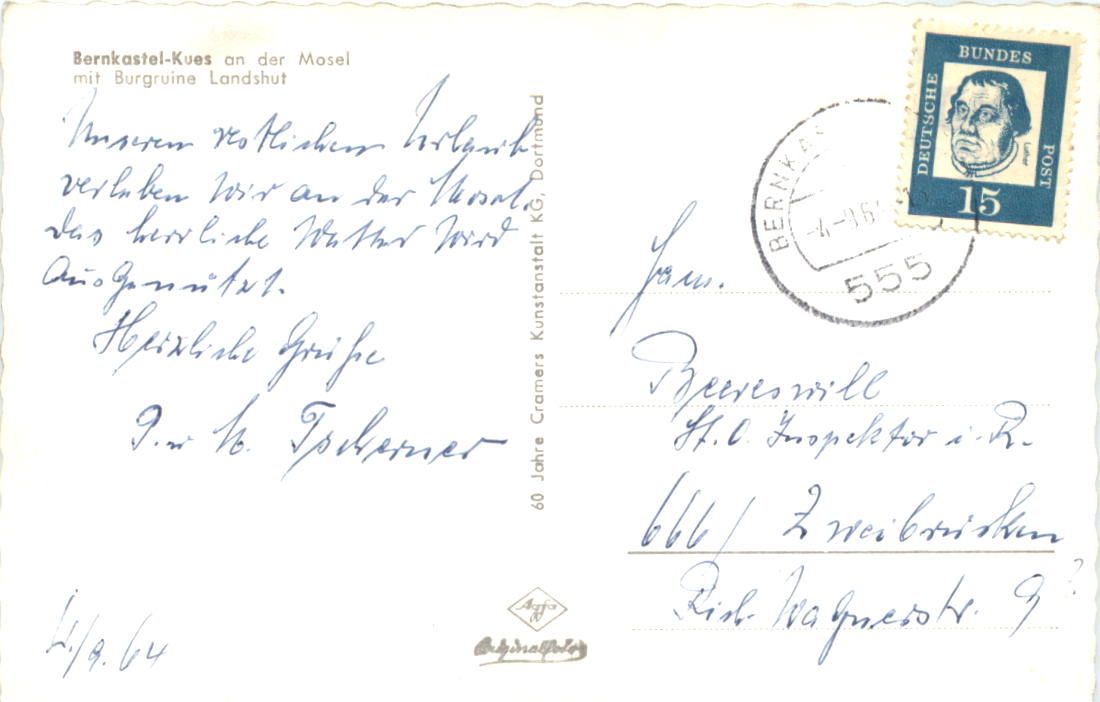 Bernkastel-Kues an der Mosel
mit Burgruine Landshut
Unseren restlichen Urlaub
verleben wir an der Mosel.
Das herrliche Wetter wird
ausgenützt.
Herzliche Grüße
Tscherner
4./9.64
60 Jahre Cramers Kunstanstalt KG, Dortmund
Agfa
Originalfoto
DEUTSCHE
BUNDES
POST
Luther
15
BERNKA
-4.-9.6
555
Fam.
Beereswill
St. O. Inspektor i. R.
666/ Zweibrücken
Rich. Wagnerstr. 9
?